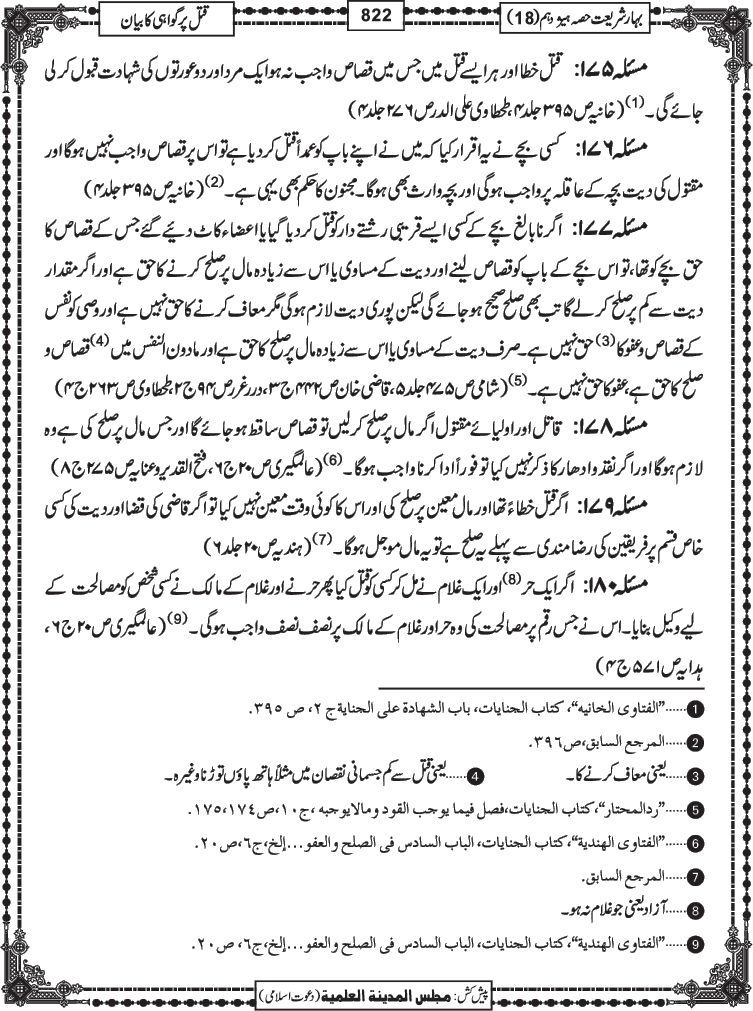 بہارِ شریعت حصہ ہیژدہم (18)
822
قتل پر گواہی کا بیان
مسئلہ ۱۷۵: قتل خطا اور ہر ایسے قتل میں جس میں قصاص واجب نہ ہو ایک مرد اور دو عورتوں کی شہادت قبول کر لی
جائے گی۔(1) (خانیہ ص ۳۹۵ جلد ۴، طحطاوی علی الدر ص ۲۷۶ جلد ۴)
مسئلہ ۱۷۶: کسی بچے نے یہ اقرار کیا کہ میں نے اپنے باپ کو عمداً قتل کر دیا ہے تو اس پر قصاص واجب نہیں ہوگا اور
مقتول کی دیت بچہ کے عاقلہ پر واجب ہوگی اور بچہ وارث بھی ہوگا۔ مجنون کا حکم بھی یہی ہے۔(2) (خانیہ ص ۳۹۵ جلد ۴)
مسئلہ ۱۷۷: اگر نابالغ بچے کے کسی ایسے قریبی رشتے دار کو قتل کر دیا گیا یا اعضاء کاٹ دیئے گئے جس کے قصاص کا
حق بچے کو تھا، تو اس بچے کے باپ کو قصاص لینے اور دیت کے مساوی یا اس سے زیادہ مال پر صلح کرنے کا حق ہے اور اگر مقدار
دیت سے کم پر صلح کر لے گا تب بھی صلح صحیح ہو جائے گی لیکن پوری دیت لازم ہوگی مگر معاف کرنے کا حق نہیں ہے اور وصی کو نفس
کے قصاص و عفو کا(3) حق نہیں ہے۔ صرف دیت کے مساوی یا اس سے زیادہ مال پر صلح کا حق ہے اور مادون النفس میں(4) قصاص و
صلح کا حق ہے، عفو کا حق نہیں ہے۔(5) (شامی ص ۴۷۵ جلد ۵، قاضی خان ص ۴۴۲ ج ۳، درر غرر ص ۹۴ ج ۲، طحطاوی ص ۲۶۳ ج ۴)
مسئلہ ۱۷۸: قاتل اور اولیائے مقتول اگر مال پر صلح کر لیں تو قصاص ساقط ہو جائے گا اور جس مال پر صلح کی ہے وہ
لازم ہوگا اور اگر نقد و ادھار کا ذکر نہیں کیا تو فوراً ادا کرنا واجب ہوگا۔(6) (عالمگیری ص ۲۰ ج ۶، فتح القدیر و عنایہ ص ۲۷۵ ج ۸)
مسئلہ ۱۷۹: اگر قتل خطاءً تھا اور مال معین پر صلح کی اور اس کا کوئی وقت معین نہیں کیا تو اگر قاضی کی قضا اور دیت کی کسی
خاص قسم پر فریقین کی رضا مندی سے پہلے یہ صلح ہے تو یہ مال موجل ہوگا۔(7) (ہندیہ ص ۲۰ جلد ۶)
مسئلہ ۱۸۰: اگر ایک حر(8) اور ایک غلام نے مل کر کسی کو قتل کیا پھر حر نے اور غلام کے مالک نے کسی شخص کو مصالحت کے
لیے وکیل بنایا۔ اس نے جس رقم پر مصالحت کی وہ حر اور غلام کے مالک پر نصف نصف واجب ہوگی۔(9) (عالمگیری ص ۲۰ ج ۶،
ہدایہ ص ۵۷۱ ج ۴)
1 ......"الفتاوی الخانیه"، کتاب الجنایات، باب الشهادة علی الجنایة ج ٢، ص ٣٩٥.
2 ......المرجع السابق، ص ٣٩٦.
3 ......یعنی معاف کرنے کا۔ 4 ......یعنی قتل سے کم جسمانی نقصان میں مثلاً ہاتھ پاؤں توڑنا وغیرہ۔
5 ......"ردالمحتار"، کتاب الجنایات، فصل فیما یوجب القود ومالایوجبه، ج١٠، ص١٧٤، ١٧٥.
6 ......"الفتاوی الهندیة"، کتاب الجنایات، الباب السادس فی الصلح والعفو...إلخ، ج٦، ص٢٠.
7 ......المرجع السابق.
8 ......آزاد یعنی جو غلام نہ ہو۔
9 ......"الفتاوی الهندیة"، کتاب الجنایات، الباب السادس فی الصلح والعفو...إلخ، ج٦، ص٢٠.
پیش کش: مجلس المدینة العلمیة (دعوت اسلامی)